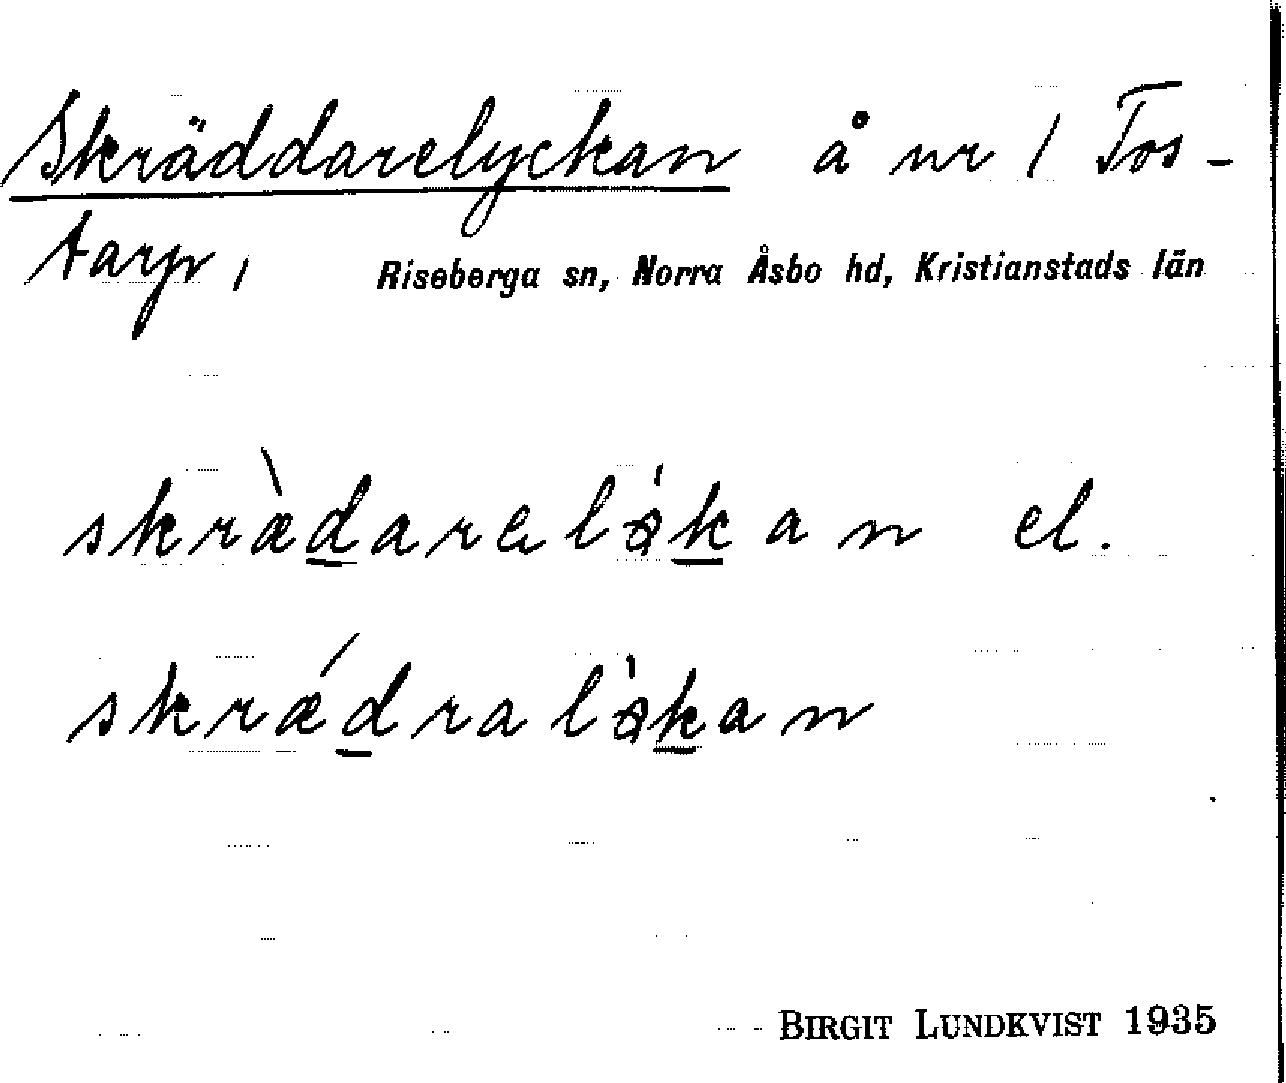 Skräddarelyckan å nr 1 Tos-
tarp, Riseberga sn, Norra Åsbo hd, Kristianstads län
skræ̀d̲arelösk̲an el.
skrǽd̲ralök̲an
BIRGIT LUNDKVIST 1935